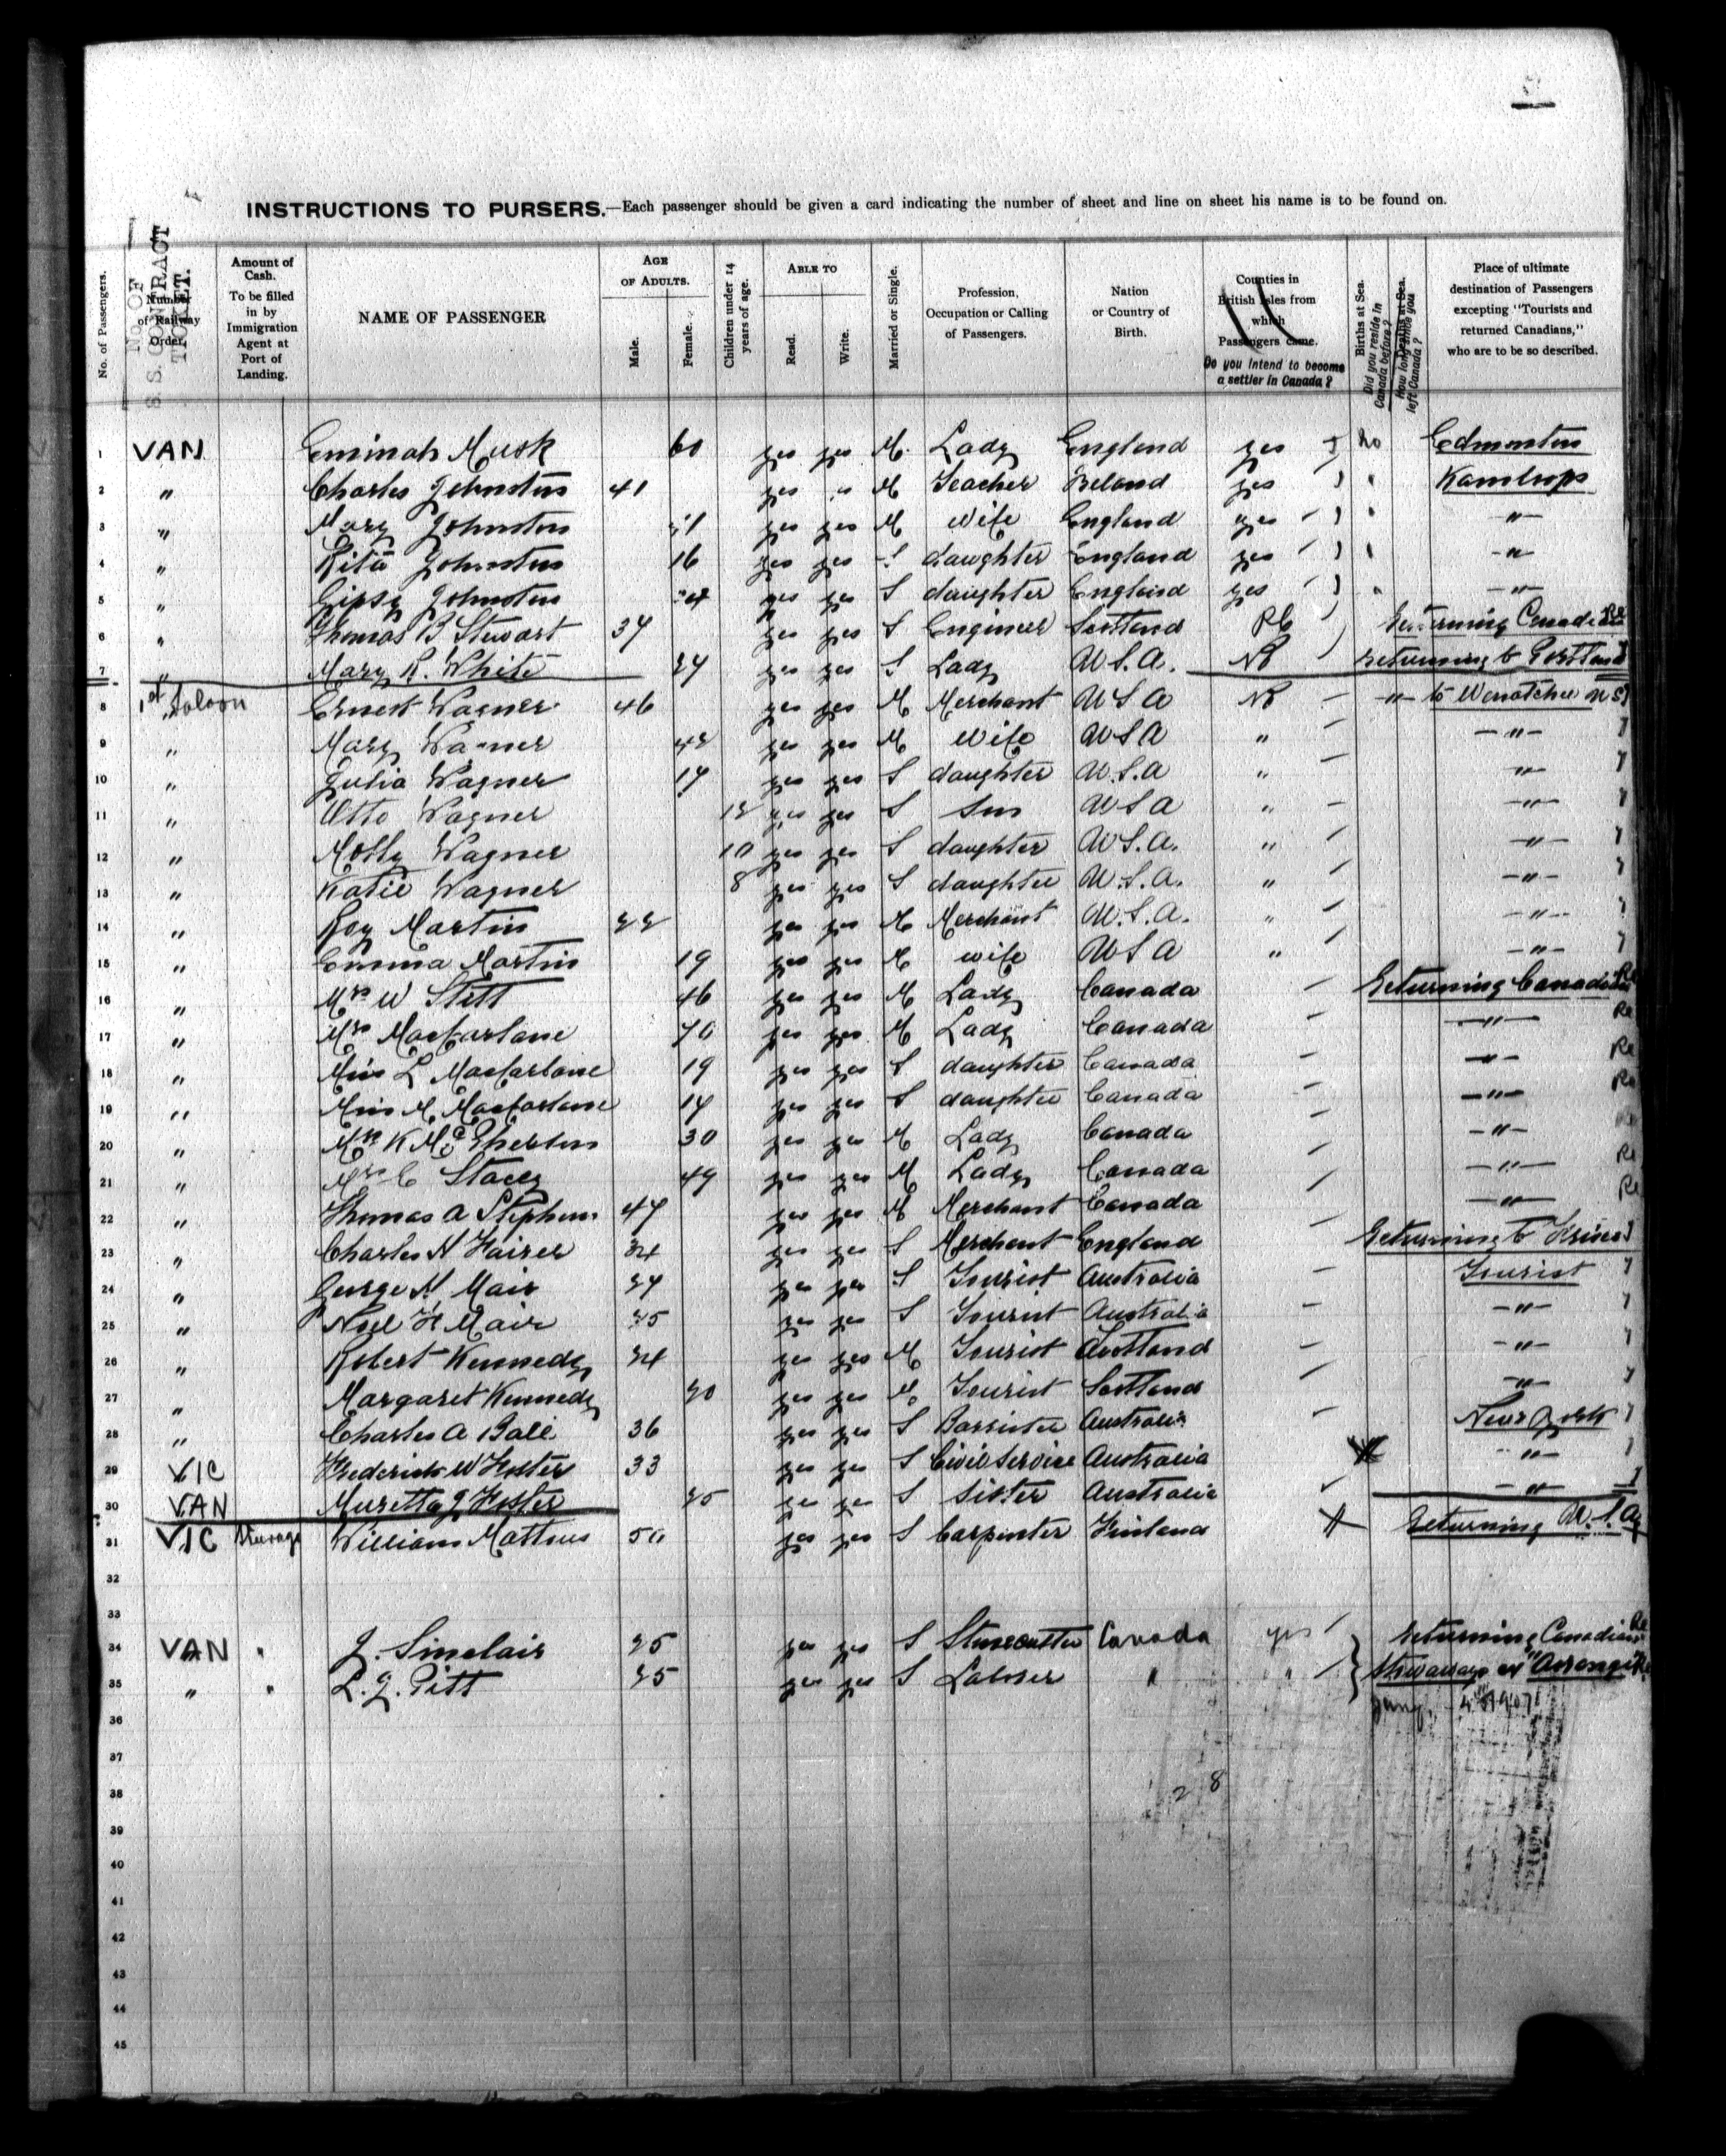 INSTRUCTIONS TO PURSERS.—Each passenger should be given a card indicating the number of sheet and line on sheet his name is to be found on.
No. of Passengers.
No. OF S. S. CONTRACT TICKET.
Number of Railway Order.
Amount of Cash. To be filled in by Immigration Agent at Port of Landing.
NAME OF PASSENGER
AGE OF ADULTS.
Male.
Female.
Children under 14 years of age.
ABLE TO
Read.
Write.
Married or Single.
Profession, Occupation or Calling of Passengers.
Nation or Country of Birth.
Counties in British Isles from which Passengers came.
Do you intend to become a settler in Canada?
Births at Sea.
Did you reside in Canada before?
Deaths at Sea.
How long since you left Canada?
Place of ultimate destination of Passengers excepting "Tourists and returned Canadians," who are to be so described.
1 VAN Musk 60 yes yes M. Lady England yes No Edmonton
2 " Charles Johnston 41 yes " M Teacher Ireland yes " Kamloops
3 " Mary Johnston yes yes M Wife England yes " "
4 " Rita Johnston 16 yes yes S daughter England yes " "
5 " Gipsy Johnston yes yes S daughter England yes " "
6 " Thomas B Stewart 34 yes yes S Engineer Scotland Returning Canadian
7 " Mary R. White 24 yes yes S Lady U.S.A. No Returning to
8 1st Saloon Ernest Wagner 46 yes yes M Merchant U S A No " to Wenatchee
9 " Mary Wagner 42 yes yes M Wife U S A " "
10 " Julia Wagner 14 yes yes S daughter U.S.A " "
11 " Otto Wagner 12 yes yes S Son U S A " "
12 " Molly Wagner 10 yes yes S daughter U S.A. " "
13 " Katie Wagner 8 yes yes S daughter U.S.A. " "
14 " Roy Martin 22 yes yes M Merchant U.S.A. " "
15 " Emma Martin 19 yes yes M wife U S A " "
16 " Mrs W Stitt 46 yes yes M Lady Canada Returning Canadian
17 " Mrs Macfarlane 40 yes yes M Lady Canada " Re
18 " Miss L Macfarlane 19 yes yes S daughter Canada " Re
19 " Miss M. Macfarlane 14 yes yes S daughter Canada " Re
20 " Mrs K 30 yes yes M Lady Canada "
21 " Mrs C Stacey 49 yes yes M Lady Canada " Re
22 " Thomas A Stephens 44 yes yes M Merchant Canada " Re
23 " Charles H 34 yes yes S Merchant England Returning to
24 " George H Mair 24 yes yes S Tourist Australia Tourist
25 " Noel H Mair 25 yes yes S Tourist Australia "
26 " Robert Kennedy 34 yes yes M Tourist Scotland "
27 " Margaret Kennedy yes yes M. Tourist Scotland "
28 " Charles A Ball 36 yes yes S Barrister Australia New York
29 VIC Frederick W Foster 33 yes yes S Civil Service Australia "
30 VAN J Foster 25 yes yes S Sister Australia "
31 VIC Steerage William 50 yes yes S Carpenter Finland Returning U.S.A
32
33
34 VAN " J. Sinclair 25 yes yes S Stonecutter Canada yes Returning Canadian
35 " " L. J. Pitt 25 yes yes S Laborer " " Stowaways ex "Aorangi"
36
37
38
39
40
41
42
43
44
45